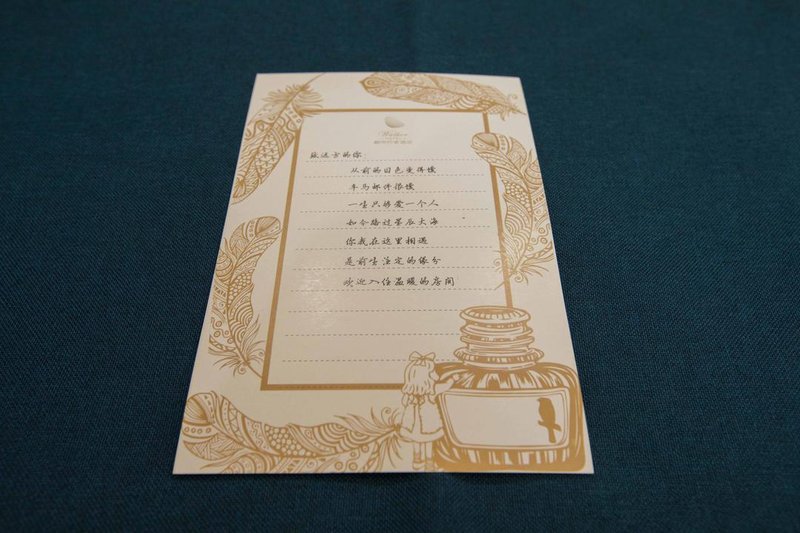 Walker
致远方的你
从前的日色变得慢
车马邮件很慢
一生只够爱一个人
如今路过星辰大海
你我在这里相遇
是前生注定的缘分
欢迎入住温暖的房间